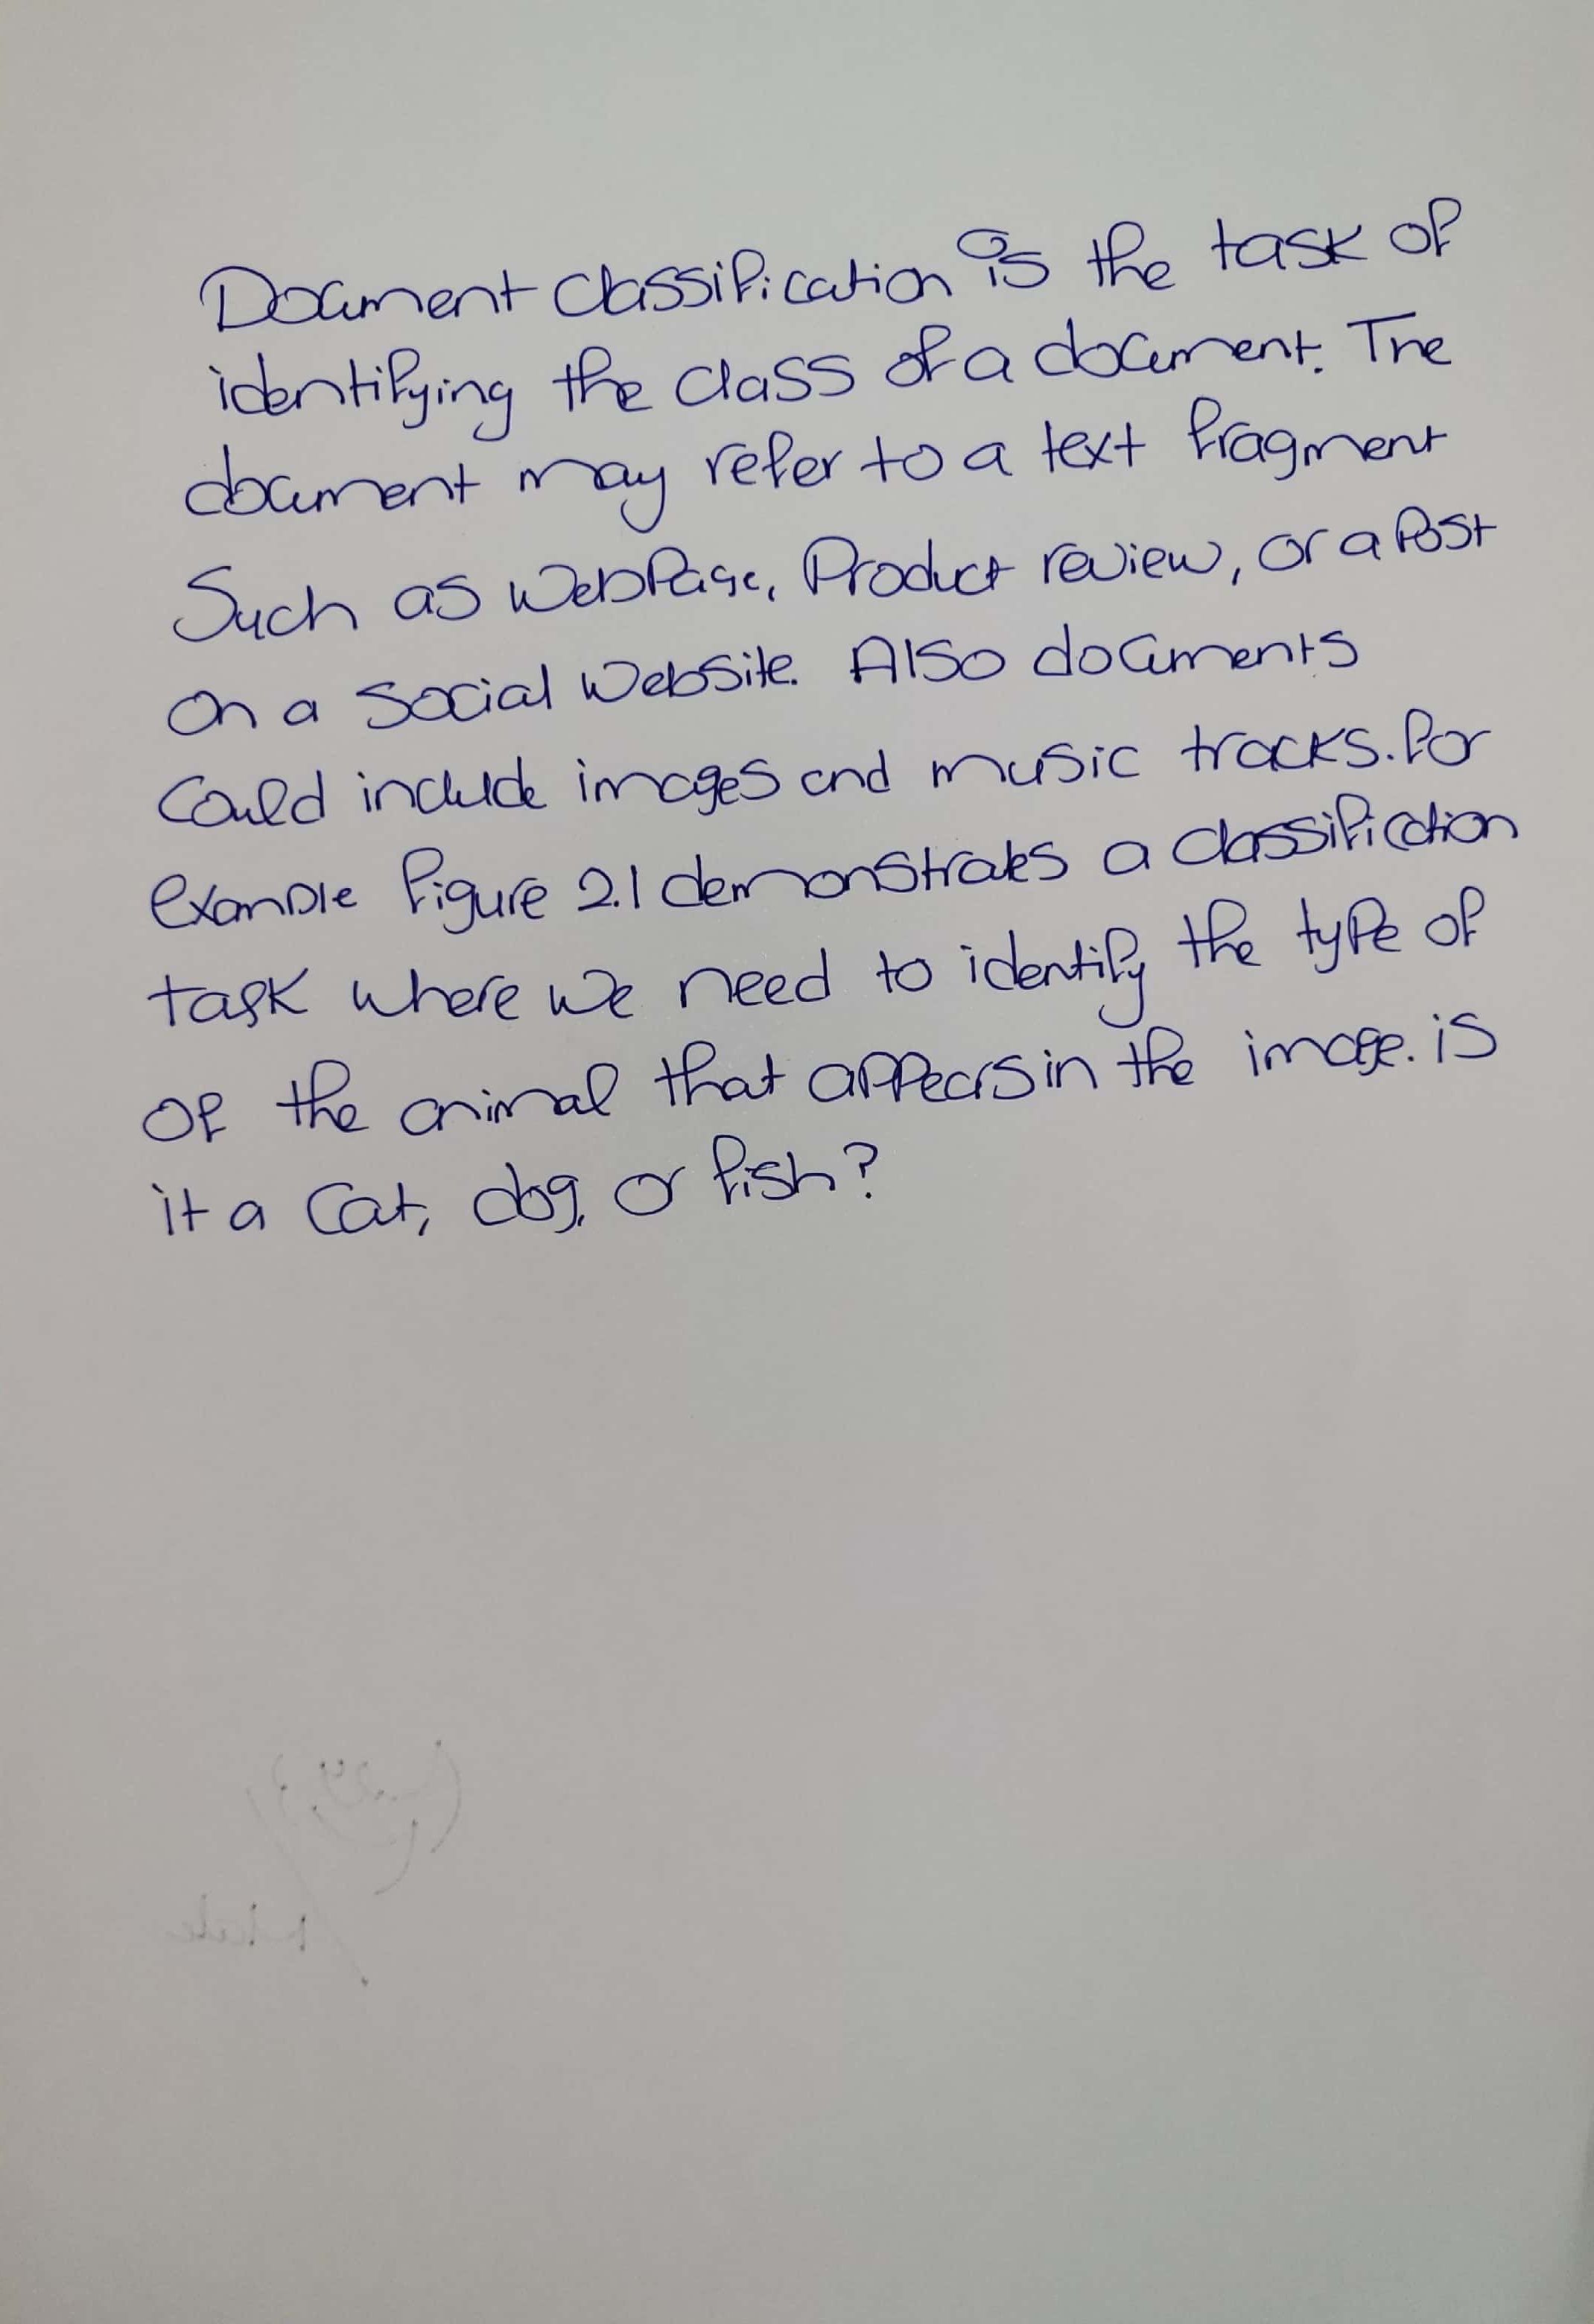 Document classification is the task of
identifying the class of a document. The
document may refer to a text fragment
Such as WebPage, Product review, or a Post
on a social website. Also documents
could include images and music tracks. for
example figure 2.1 demonstrates a classification
task where we need to identify the type of
of the animal that appears in the image. is
it a cat, dog, or fish?